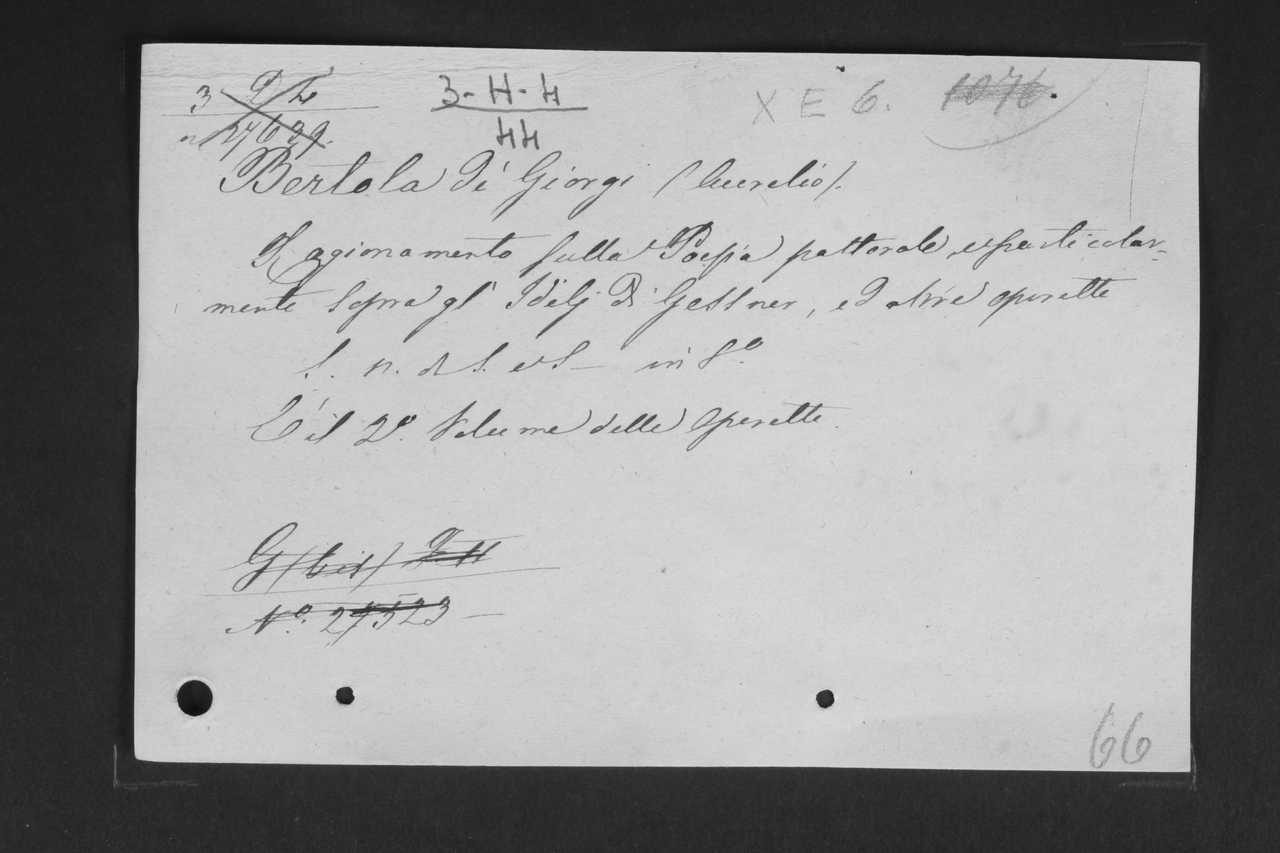 3 3-H-4 X E 6. 1076.
n 27629. 44
Bertola di Giorgi (Aurelio).
Ragionamento sulla Poesia pastorale, e particolar-
mente sopra gl' Idilj di Gessner, ed altre operette
S. n. di S. e S— in 8.º
È il 2º. Volume delle operette.
G (bis)
Nº. 27523 —
66